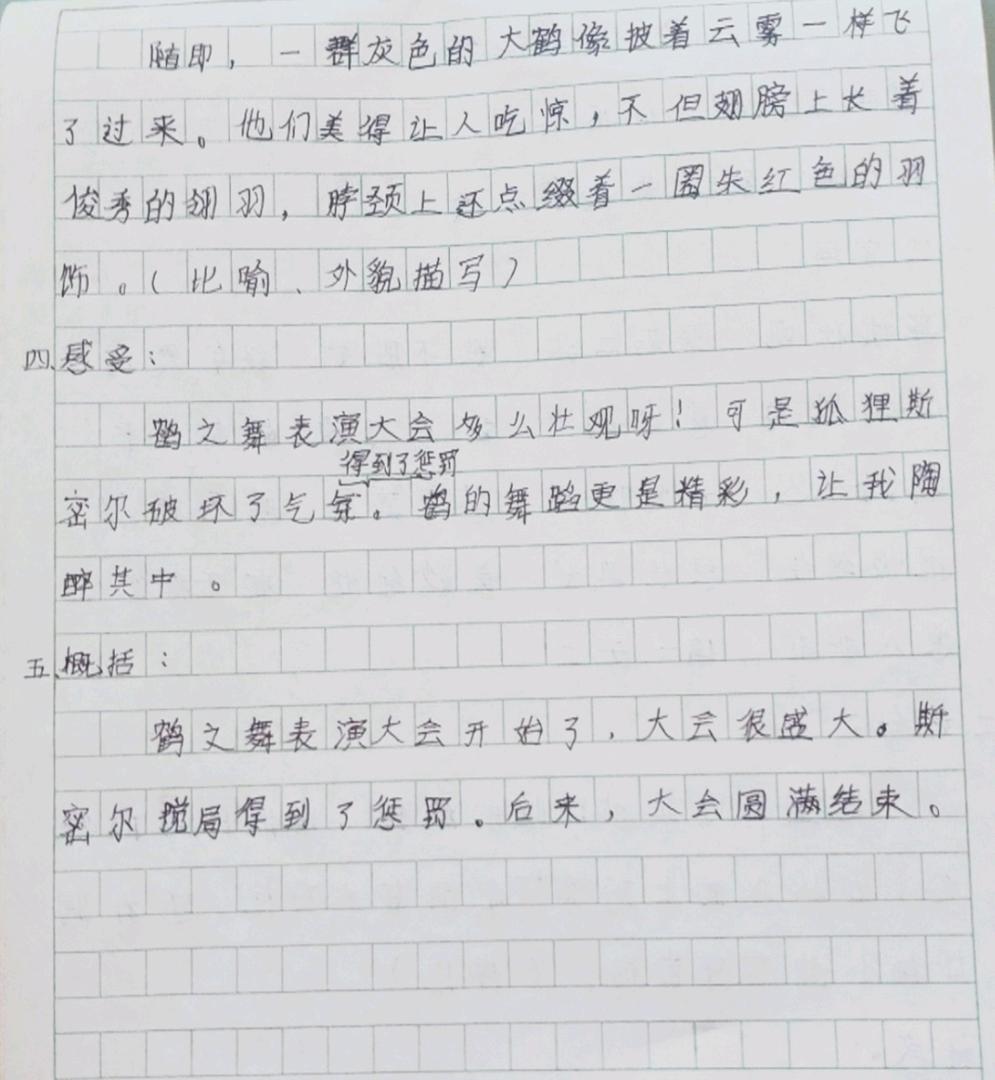 随即，一群灰色的大鹤像披着云雾一样飞
了过来。他们美得让人吃惊，不但翅膀上长着
俊秀的翎羽，脖颈上还点缀着一圈朱红色的羽
饰。（比喻、外貌描写）
四、感受：
鹤之舞表演大会多么壮观呀！可是狐狸斯
得到了惩罚
密尔破坏了气氛。鹤的舞蹈更是精彩，让我陶
醉其中。
五、概括：
鹤之舞表演大会开始了，大会很盛大。斯
密尔搅局得到了惩罚。后来，大会圆满结束。